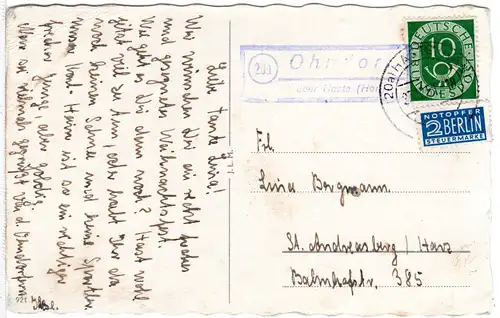 Liebe Tante Lina!
Wir wünschen Dir ein recht frohes
und gesegnetes Weihnachtsfest.
Wie geht es Dir denn noch? Hast wohl
jetzt viel zu tun, oder habt Ihr da
noch keinen Schnee und keine Sportler.
Unser Karl-Heinz ist so ein richtiger
frecher Junge, aber goldig.
sei vielmals gegrüßt v. d. Ohndorfern
921
(20a)
Ohndorf
über Haste (Han
(20a) HA
DEUTSCHE
BUNDESPOST
10
NOTOPFER
2 BERLIN
STEUERMARKE
Frl.
Lina Bergmann.
St. Andreasberg / Harz
Bahnhofstr. 385